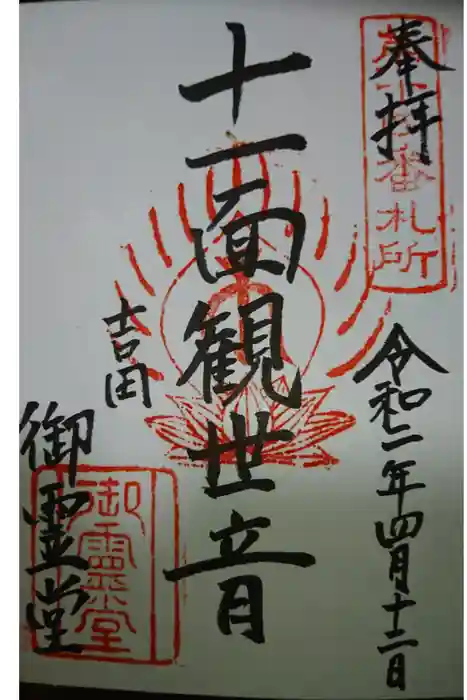 奉拝
番札所
令和二年四月十二日
十一面観世音
吉田
御霊堂
御霊堂